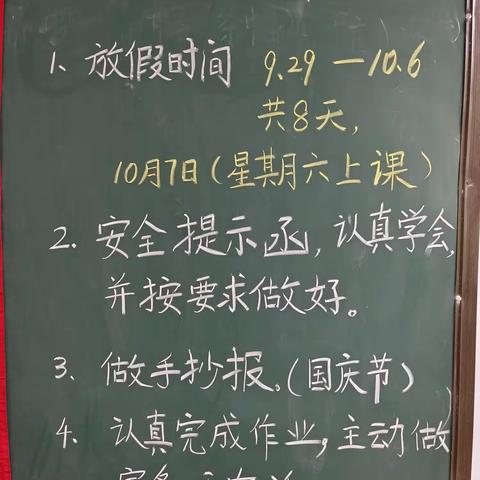 1、放假时间 9.29 — 10.6
共8天,
10月7日(星期六上课)
2. 安全提示函,认真学会,
并按要求做好。
3、做手抄报。(国庆节)
4. 认真完成作业,主动做